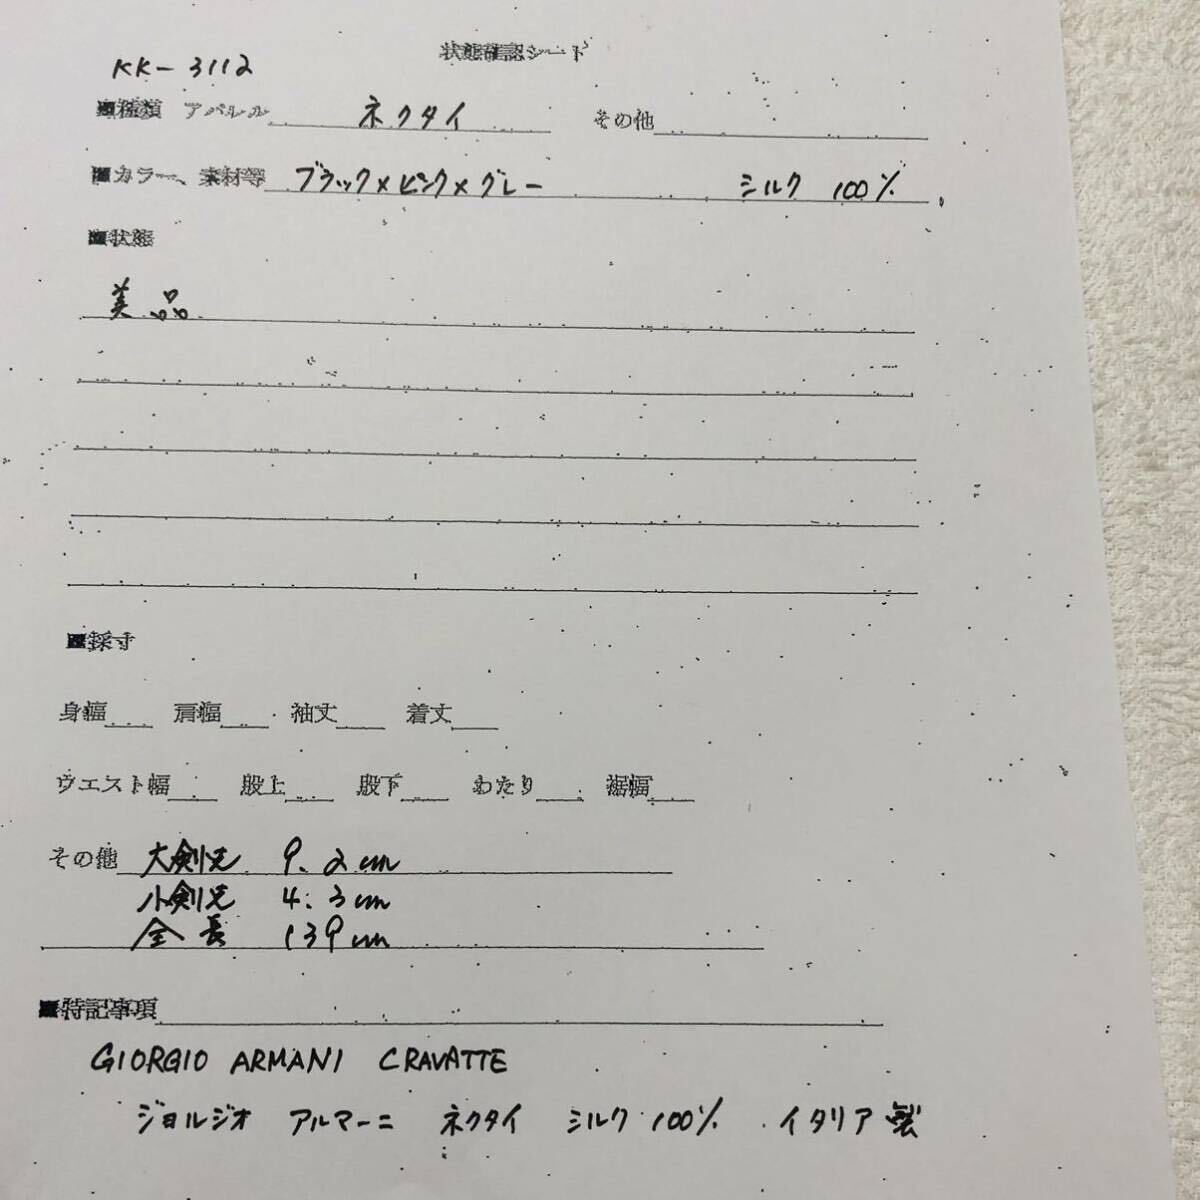 状態確認シート
KK-3112
■種類 アパレル ネクタイ その他
■カラー、素材等 ブラック×ピンク×グレー シルク 100%
■状態
美品
■採寸
身幅 肩幅 袖丈 着丈
ウエスト幅 股上 股下 わたり 裾幅
その他 大剣先 9.2cm
小剣先 4.3cm
全長 139cm
■特記事項
GIORGIO ARMANI CRAVATTE
ジョルジオ アルマーニ ネクタイ シルク 100% イタリア製